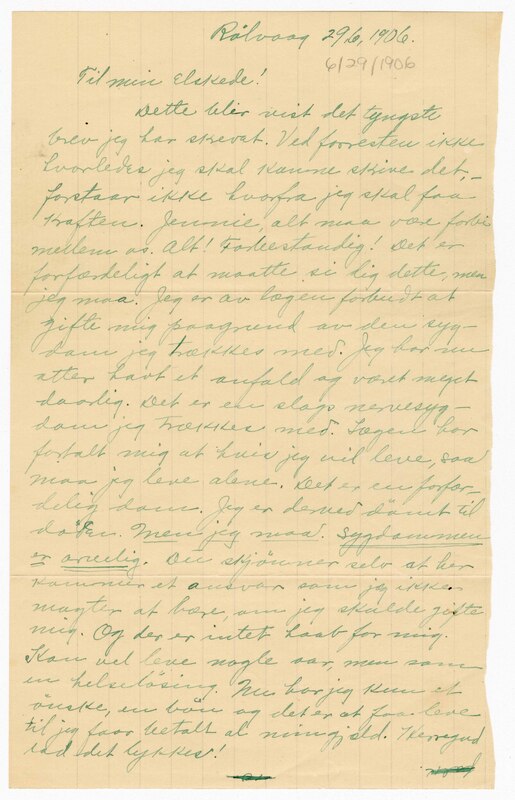 Rölvaag 29/6, 1906.
6/29/1906
Til min Elskede!
Dette blir vist det tyngste
brev jeg har skrevet. Ved forresten ikke
hvorledes jeg skal kunne skrive det, –
forstaar ikke hvorfra jeg skal faa
kraften. Jennie, alt maa være forbi
mellem os. Alt! For bestandig! Det er
forfærdeligt at maatte si dig dette, men
jeg maa. Jeg er av lægen forbudt at
gifte mig paagrund av den syg-
dom jeg trækkes med. Jeg har nu
atter havt et anfald og været meget
daarlig. Det er en slags nervesyg-
dom jeg trækkes med. Lægen har
fortalt mig at hvis jeg vil leve, saa
maa jeg leve alene. Det er en forfær-
delig dom. Jeg er derved dömt til
döden. Men jeg maa. Sygdommen
er arvelig. Du skjönner selv at her
kommer et ansvar som jeg ikke
magter at bære, om jeg skulde gifte
mig. Og der er intet haab for mig.
Kan vel leve nogle aar, men som
en helselösing. Nu har jeg kun et
önske, en bön og det er at faa leve
til jeg faar betalt al min gjæld. Herregud
lad det lykkes!